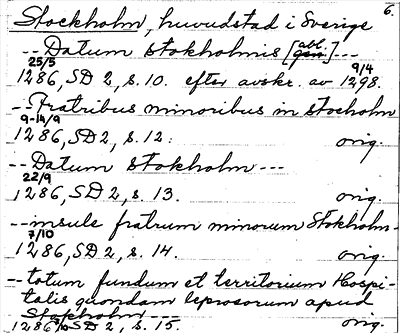 6.
Stockholm, huvudstad i Sverige
-- Datum stokholmis [abl. gen.] ---
25/5 9/4
1286, SD 2, s. 10. efter avskr. av 1298.
-- Fratribus minoribus in stocholm
9-14/9
1286, SD 2, s. 12. orig.
-- Datum stokholm ---
22/9
1286, SD 2, s. 13. orig.
-- insule fratrum minorum Stokholm-
7/10
1286, SD 2, s. 14. orig.
-- totum fundum et territorium Hospi-
talis quondam leprosorum apud
Stokholm ---
1286 SD 2, s. 15. orig.